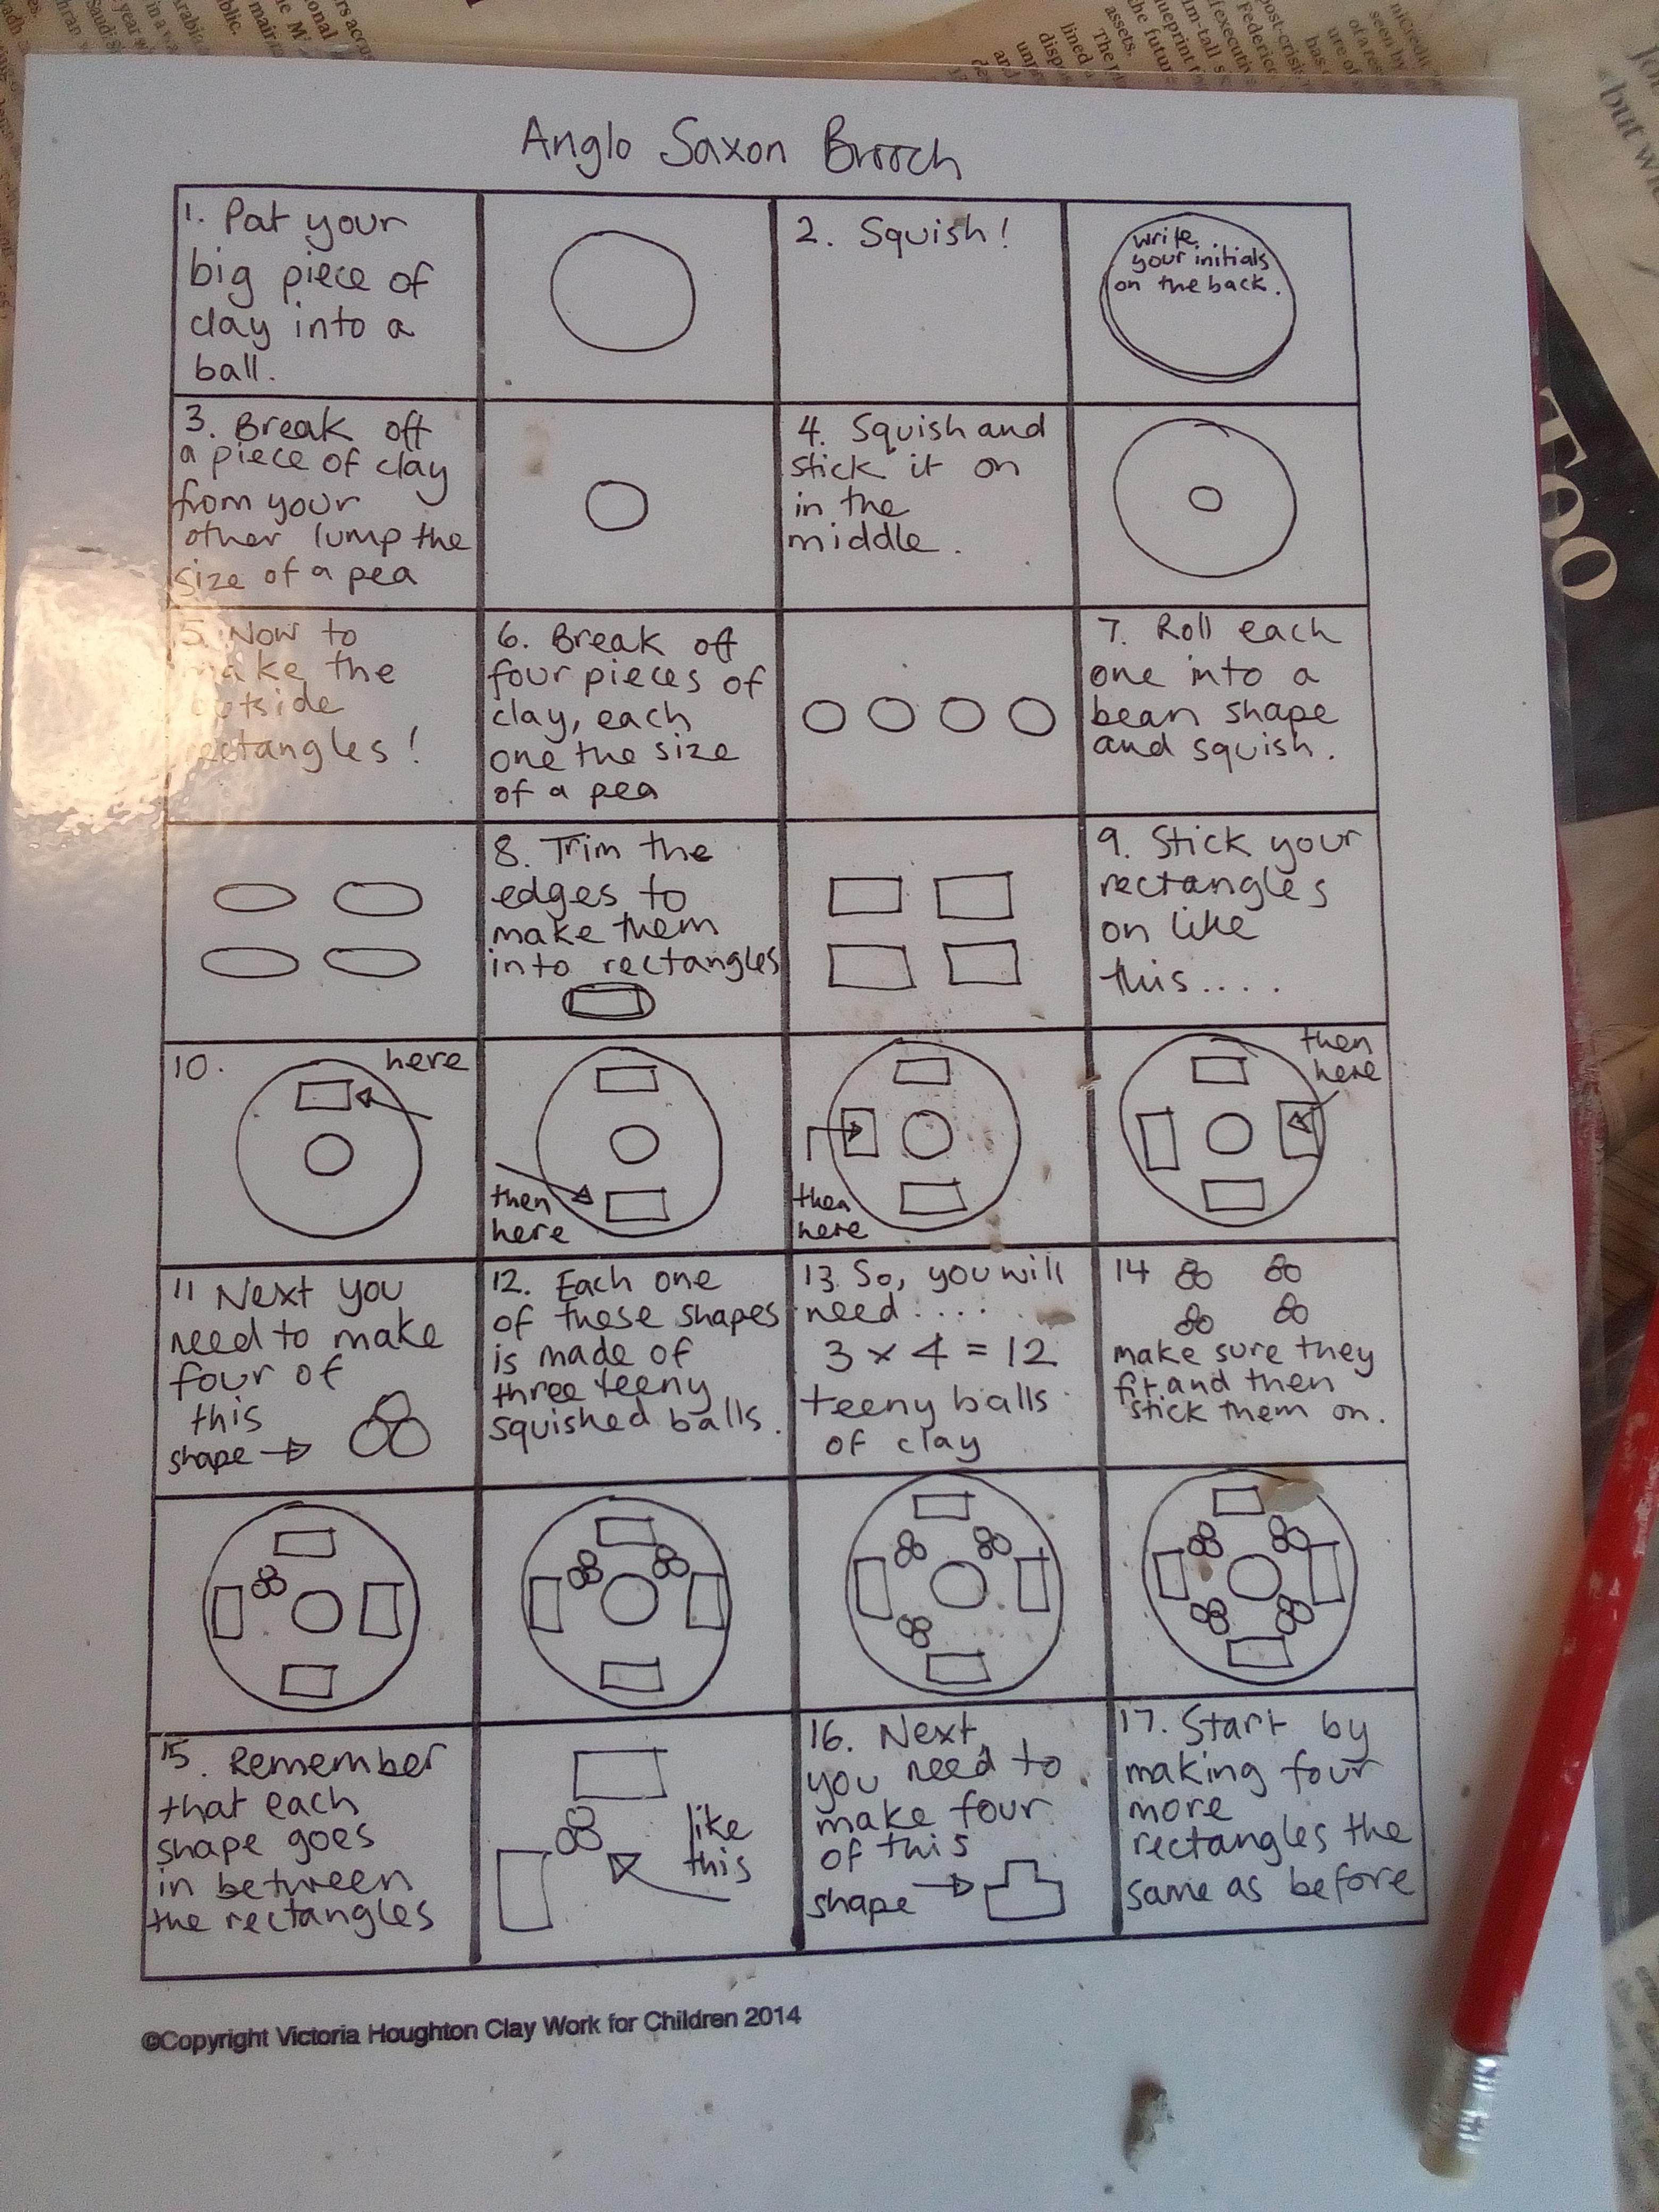 Anglo Saxon Brooch
1. Pat your
big piece of
clay into a
ball.
2. Squish!
Write
your initials
on the back.
3. Break off
a piece of clay
from your
other lump the
size of a pea
4. Squish and
stick it on
in the
middle.
5. Now to
make the
outside
rectangles!
6. Break off
four pieces of
clay, each
one the size
of a pea
7. Roll each
one into a
bean shape
and squish.
8. Trim the
edges to
make them
into rectangles
9. Stick your
rectangles
on like
this....
10.
here
then
here
then
here
then
here
11 Next you
need to make
four of
this
shape
12. Each one
of these shapes
is made of
three teeny
squished balls.
13. So, you will
need....
3 x 4 = 12
teeny balls
of clay
14
make sure they
fit and then
stick them on.
15. Remember
that each
shape goes
in between
the rectangles
like
this
16. Next
you need to
make four
of this
shape
17. Start by
making four
more
rectangles the
same as before
©Copyright Victoria Houghton Clay Work for Children 2014
TOO
but
assets.
the future